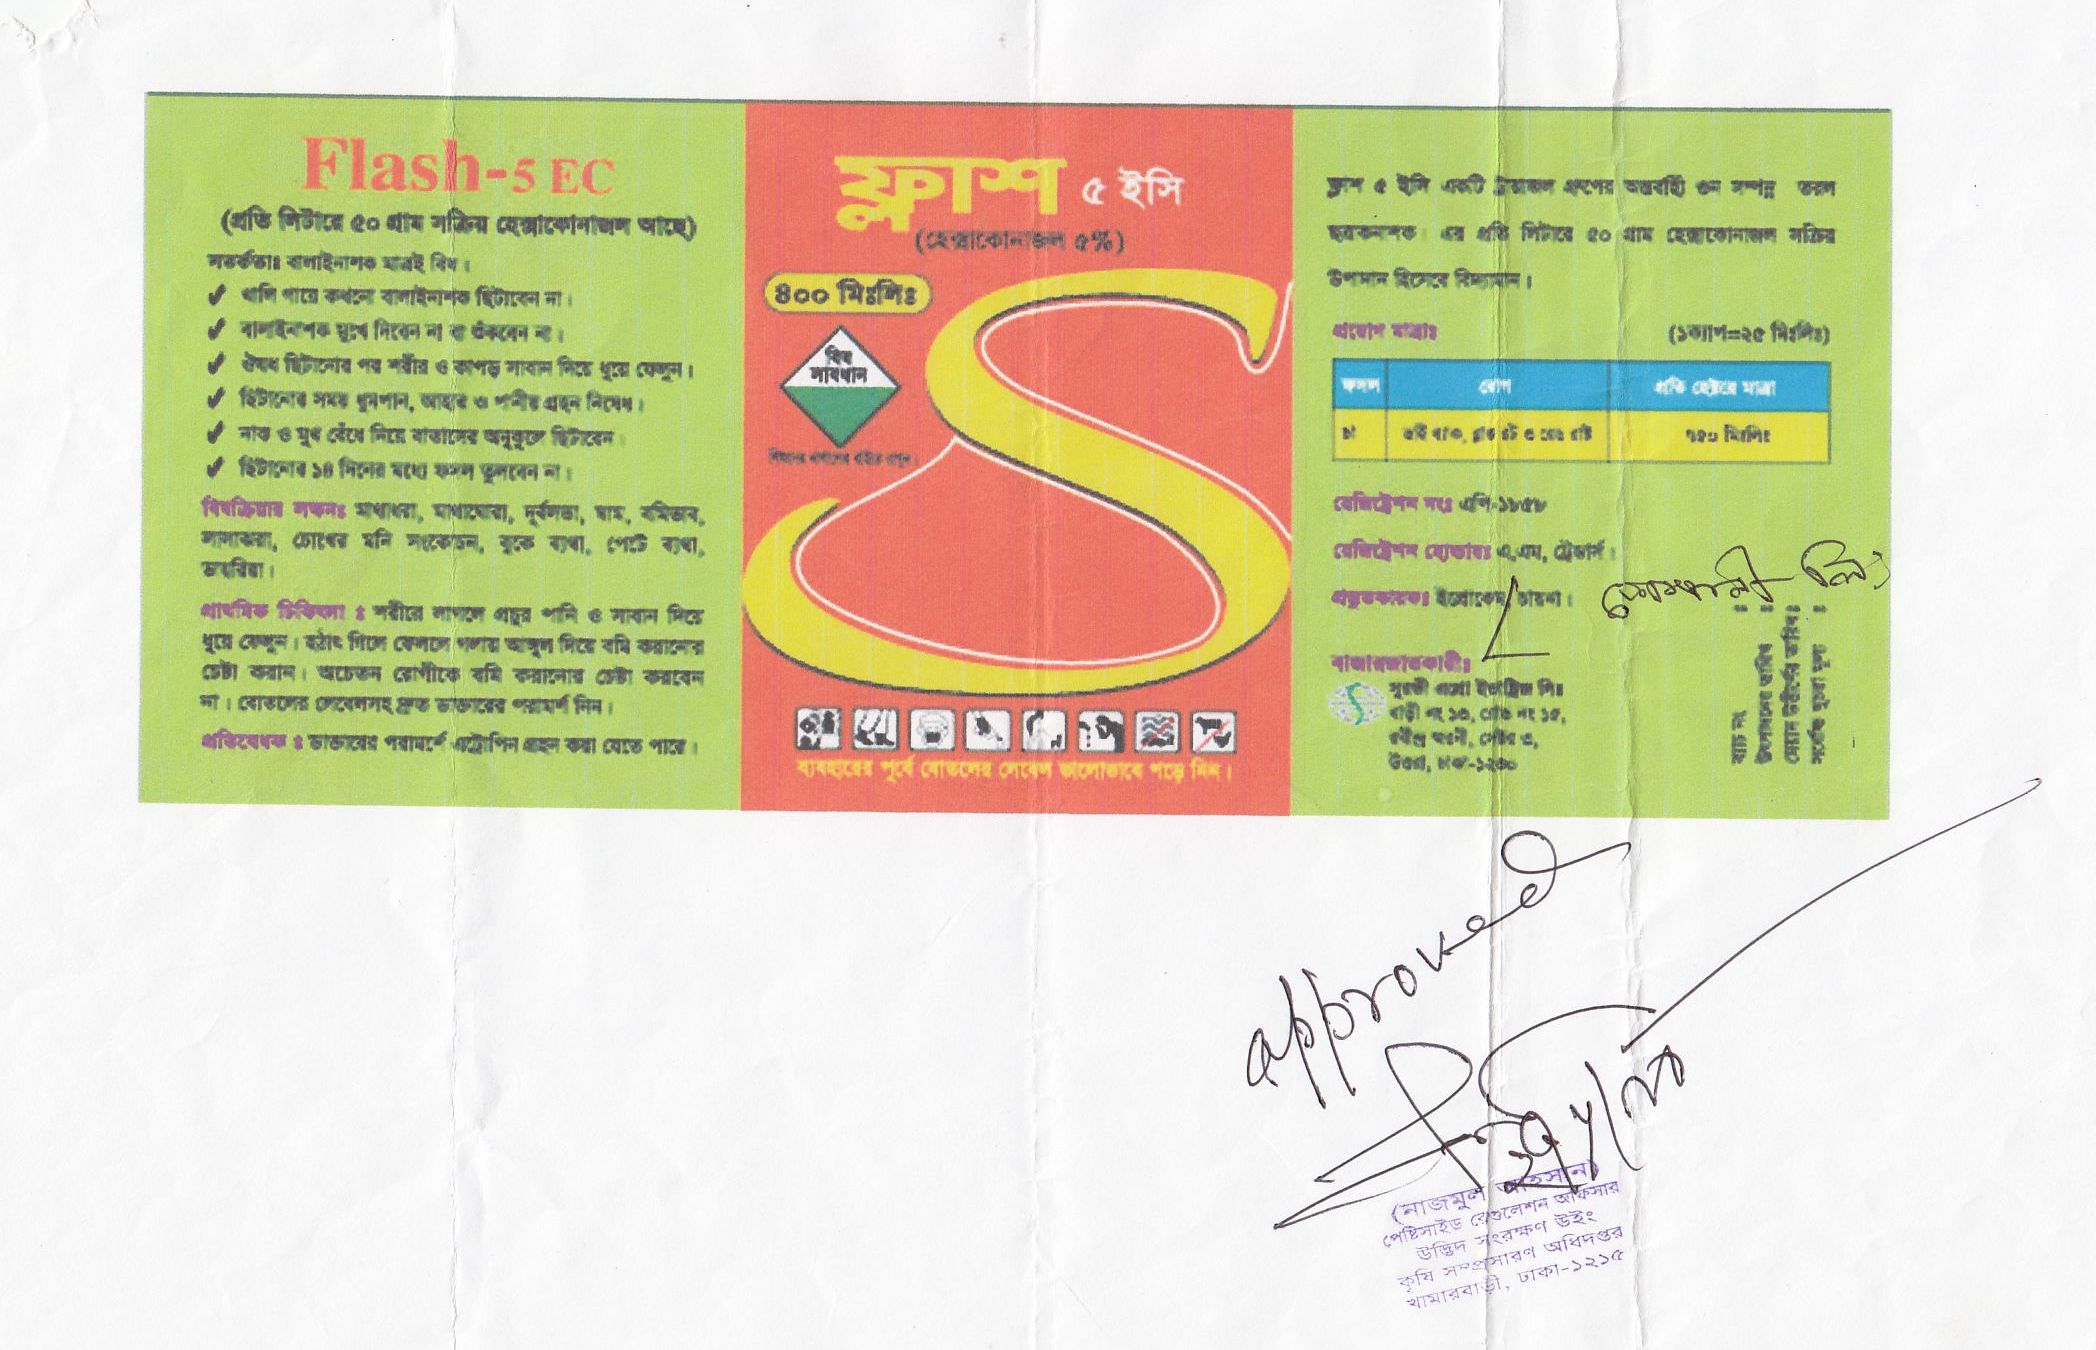 Flash-5 EC
(প্রতি লিটারে ৫০ গ্রাম সক্রিয় হেক্সাকোনাজল আছে)
সতর্কতাঃ বালাইনাশক মাত্রই বিষ।
✔ খালি গায়ে কখনো বালাইনাশক ছিটাবেন না।
✔ বালাইনাশক মুখে দিবেন না বা শুঁকবেন না।
✔ ঔষধ ছিটানোর পর শরীর ও কাপড় সাবান দিয়ে ধুয়ে ফেলুন।
✔ ছিটানোর সময় ধুমপান, আহার ও পানীয় গ্রহন নিষেধ।
✔ নাক ও মুখ বেঁধে নিয়ে বাতাসের অনুকুলে ছিটাবেন।
✔ ছিটানোর ১৪ দিনের মধ্যে ফসল তুলবেন না।
বিষক্রিয়ার লক্ষনঃ মাথাধরা, মাথাঘোরা, দূর্বলতা, ঘাম, বমিভাব,
লালাঝরা, চোখের মনি সংকোচন, বুকে ব্যথা, পেটে ব্যথা,
ডায়রিয়া।
প্রাথমিক চিকিৎসা ঃ শরীরে লাগলে প্রচুর পানি ও সাবান দিয়ে
ধুয়ে ফেলুন। হঠাৎ গিলে ফেললে গলায় আঙ্গুল দিয়ে বমি করানোর
চেষ্টা করান। অচেতন রোগীকে বমি করানোর চেষ্টা করবেন
না। বোতলের লেবেলসহ দ্রুত ডাক্তারের পরামর্শ নিন।
প্রতিষেধক ঃ ডাক্তারের পরামর্শে এট্রোপিন গ্রহন করা যেতে পারে।
ফ্লাশ ৫ ইসি
(হেক্সাকোনাজল ৫%)
৪০০ মিঃলিঃ
বিষ
সাবধান
ব্যবহারের পূর্বে বোতলের লেবেল ভালোভাবে পড়ে নিন।
ফ্লাশ ৫ ইসি একটি ট্রায়াজল গ্রুপের অন্তর্বাহী গুন সম্পন্ন তরল
ছত্রাকনাশক। এর প্রতি লিটারে ৫০ গ্রাম হেক্সাকোনাজল সক্রিয়
উপাদান হিসেবে বিদ্যমান।
প্রয়োগ মাত্রাঃ (১ক্যাপ=২৫ মিঃলিঃ)
ফসল রোগ প্রতি হেক্টরে মাত্রা
চা ৭৫০ মিঃলিঃ
রেজিষ্ট্রেশন নংঃ এপি-১৮৫৮
রেজিষ্ট্রেশন হোল্ডারঃ এ,এম, ট্রেডার্স।
প্রস্তুতকারকঃ চায়না।
বাজারজাতকারীঃ
এগ্রো ইন্ডাষ্ট্রিজ লিঃ
বাড়ী নং ১৩, রোড নং ১৫,
রবীন্দ্র স্বরনী, সেক্টর ৩,
উত্তরা, ঢাকা-১২৩০
ব্যাচ নং ঃ
উৎপাদনের তারিখ ঃ
মেয়াদ উত্তীর্ণের তারিখ ঃ
সর্বোচ্চ খুচরা মূল্য ঃ
approved
(নাজমুল আহসান)
পেষ্টিসাইড রেগুলেশন অফিসার
উদ্ভিদ সংরক্ষণ উইং
কৃষি সম্প্রসারণ অধিদপ্তর
খামারবাড়ী, ঢাকা-১২১৫